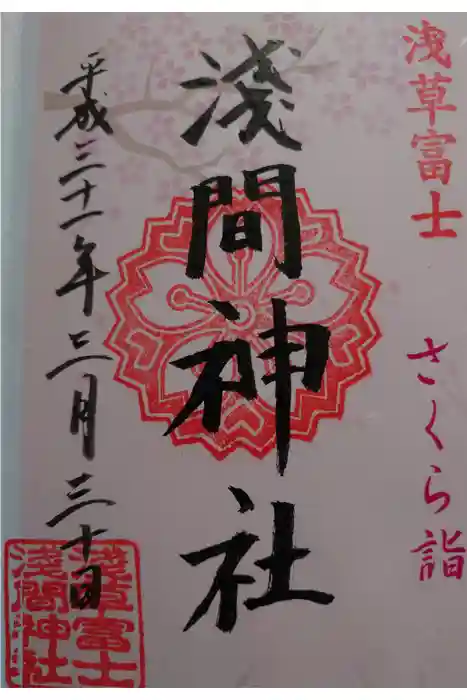 浅草富士
さくら詣
淺間神社
平成三十一年三月三十日
浅草富士
淺間神社